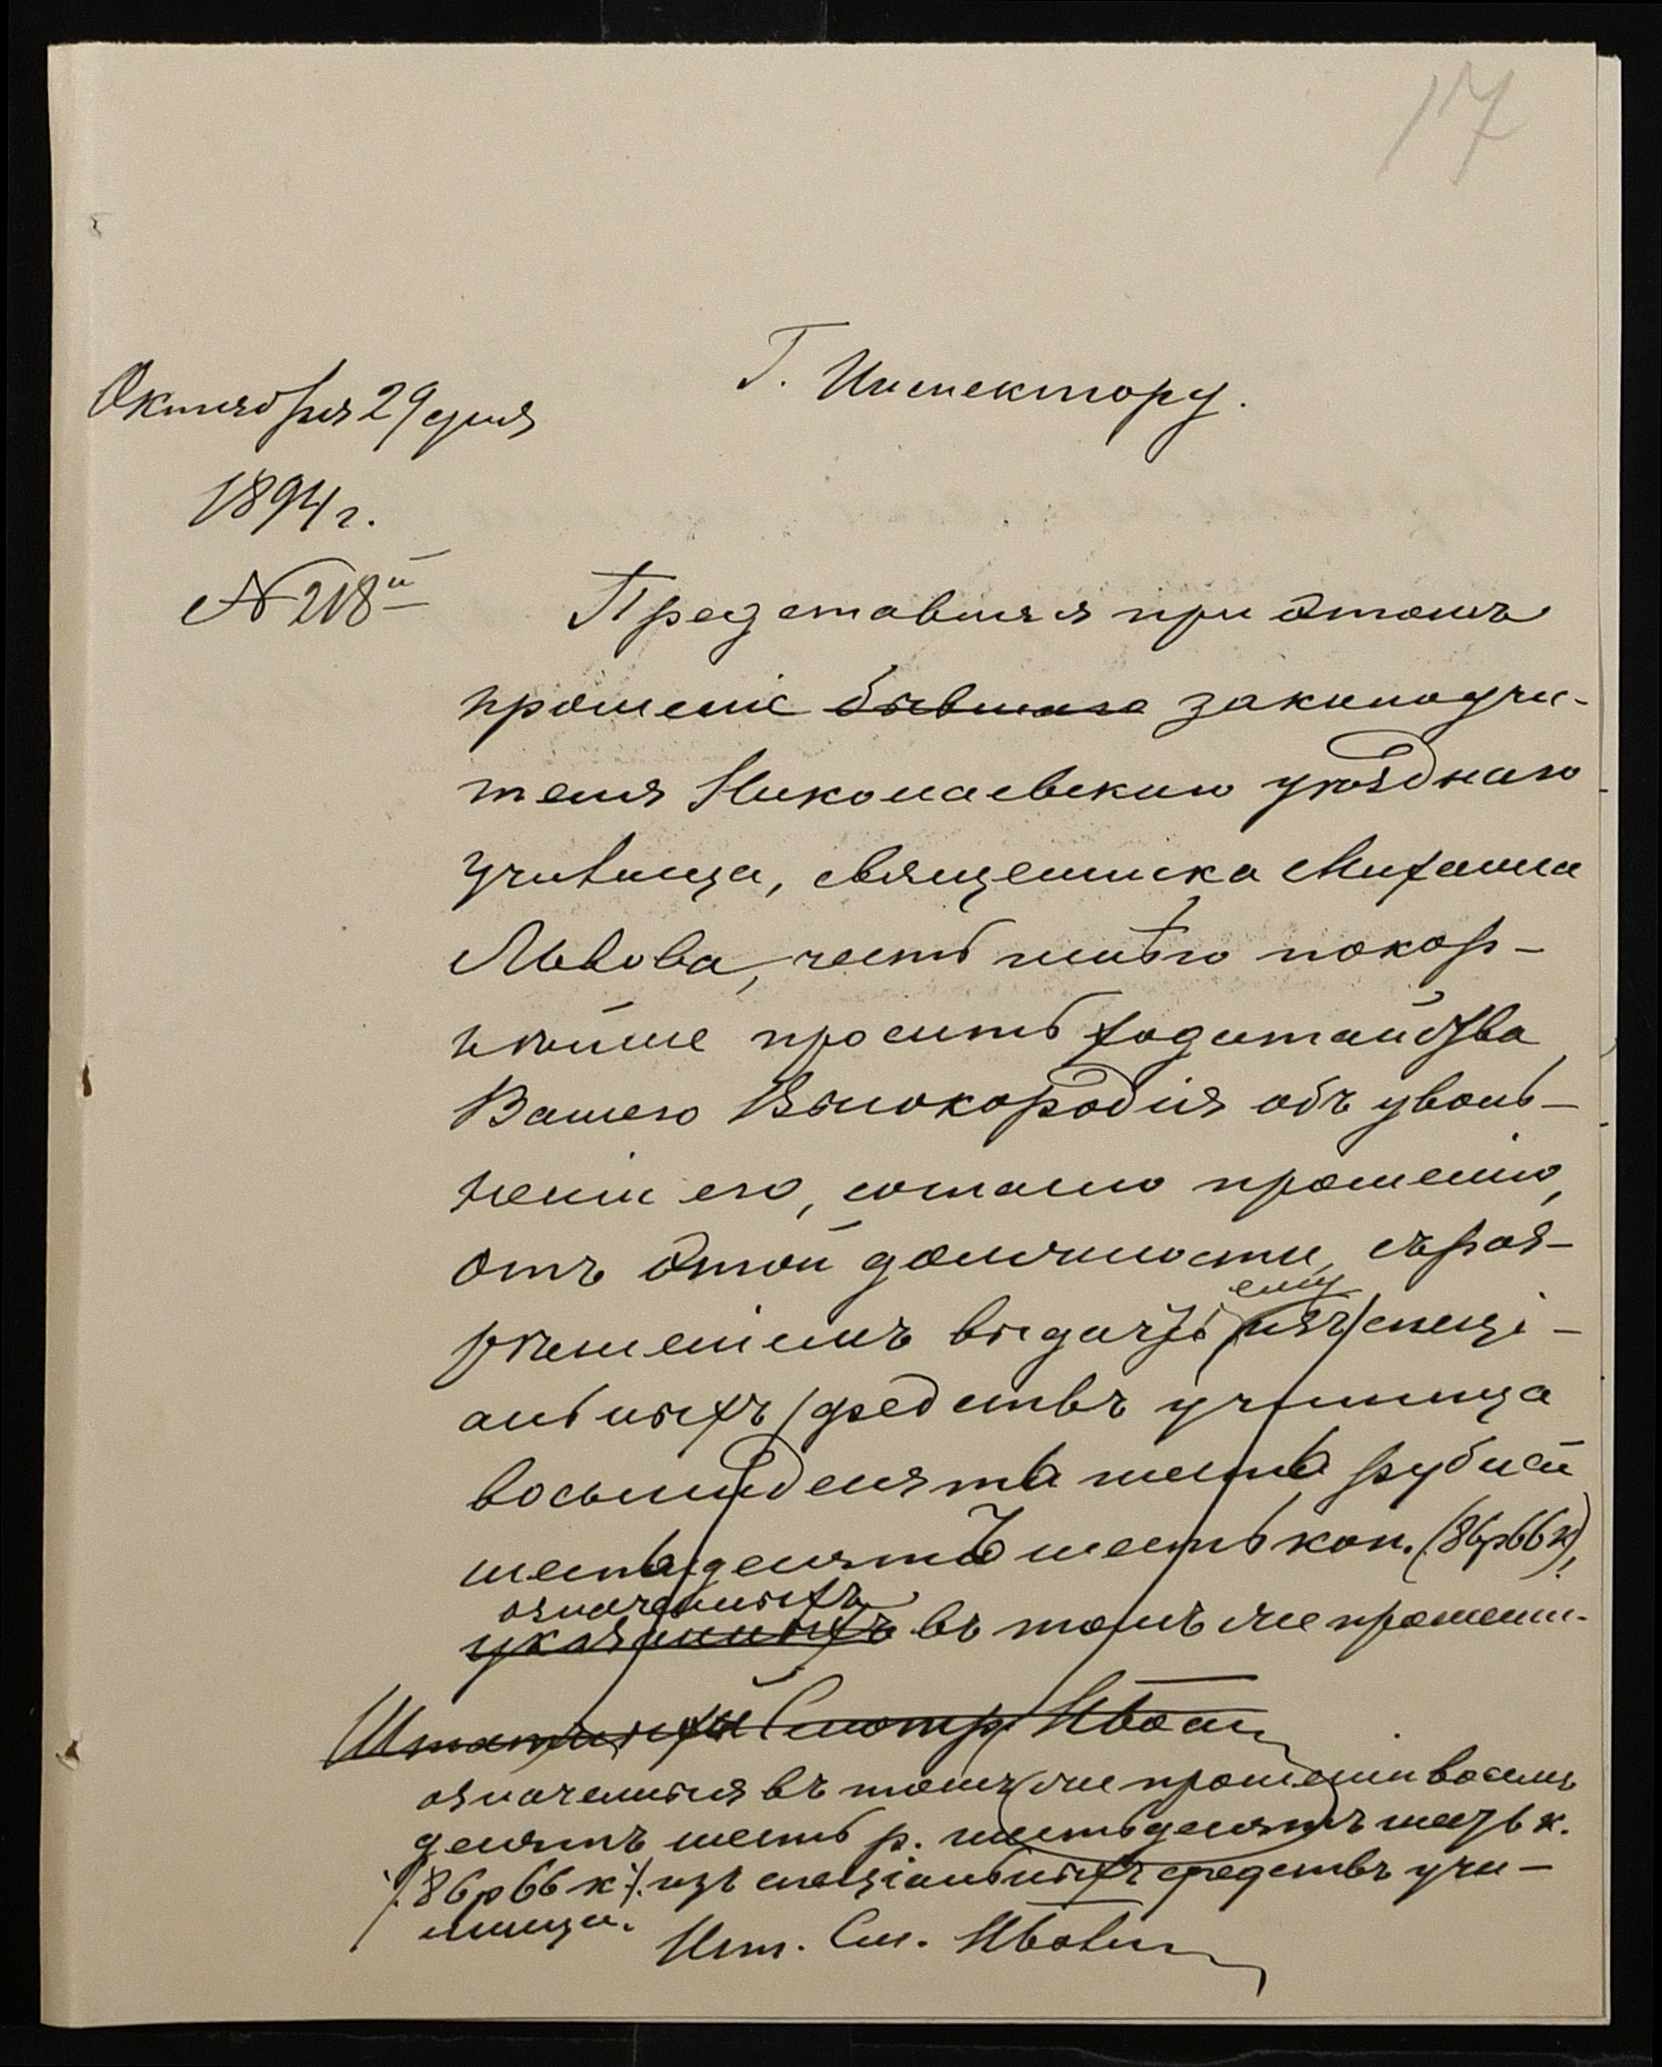 17
Г. Инспектору.
Октября 29 дня
1894 г.
№ 218й
Представляя при этомъ
прошеніе бывшаго законоучи-
теля Николаевскаго уѣзднаго
училища, священника Михаила
Львова, честь имѣю покор-
нѣйше просить ходатайства
Вашего Высокородія объ уволь-
неніи его, согласно прошенію,
отъ этой должности, съ раз-
рѣшеніемъ выдачи ему изъ спеці-
альныхъ средствъ училища
восьмидесяти шести рублей
шестидесяти шесть коп. (86р66к),
означенныхъ
указанныхъ въ томъ же прошеніи.
Штатный Смотр.
означенныя въ томъ же прошеніи восемь
десятъ шесть р. шестьдесятъ шесть к.
/86р66к/. изъ спеціальныхъ средствъ учи-
лища.
Шт. См.